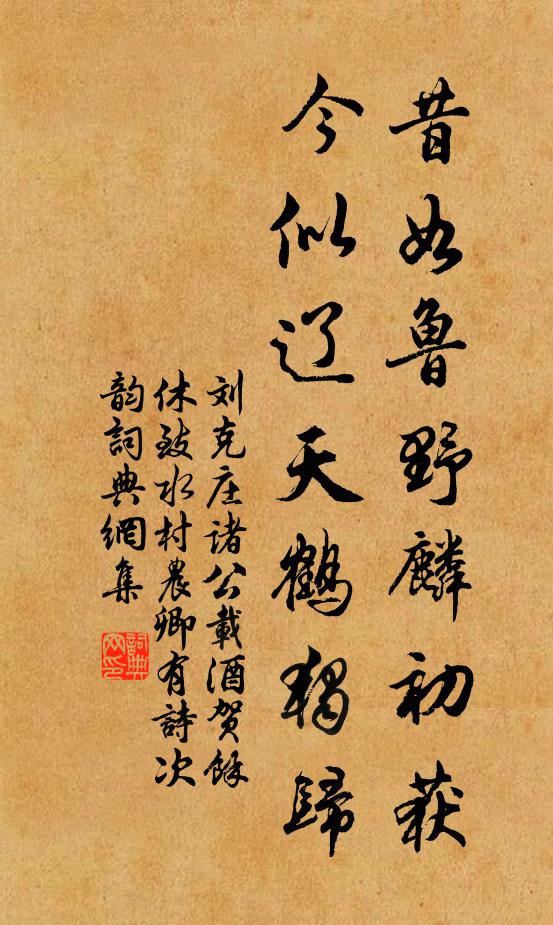 昔如鲁野麟初获
今似辽天鹤独归
刘克庄诸公載酒贺餘
休致水村農卿有詩次
韵詞典網集
詞典
网印